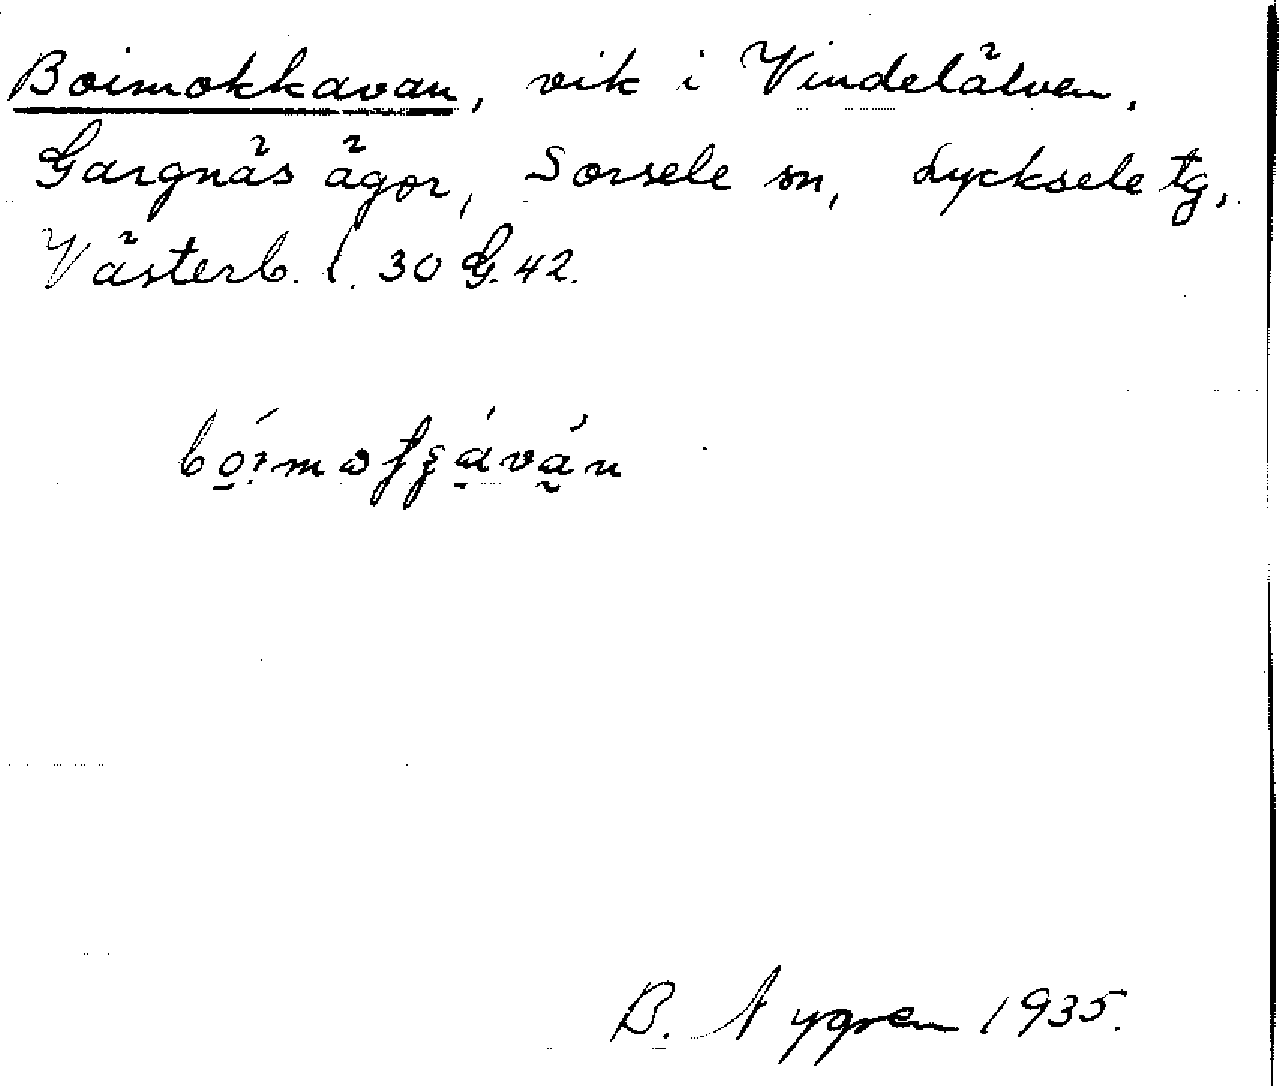 Boimokkavan, vik i Vindelälven.
Gargnäs ägor, Sorsele sn, Lycksele tg,
Västerb. l. 30 G. 42.
B. Nygren 1935.